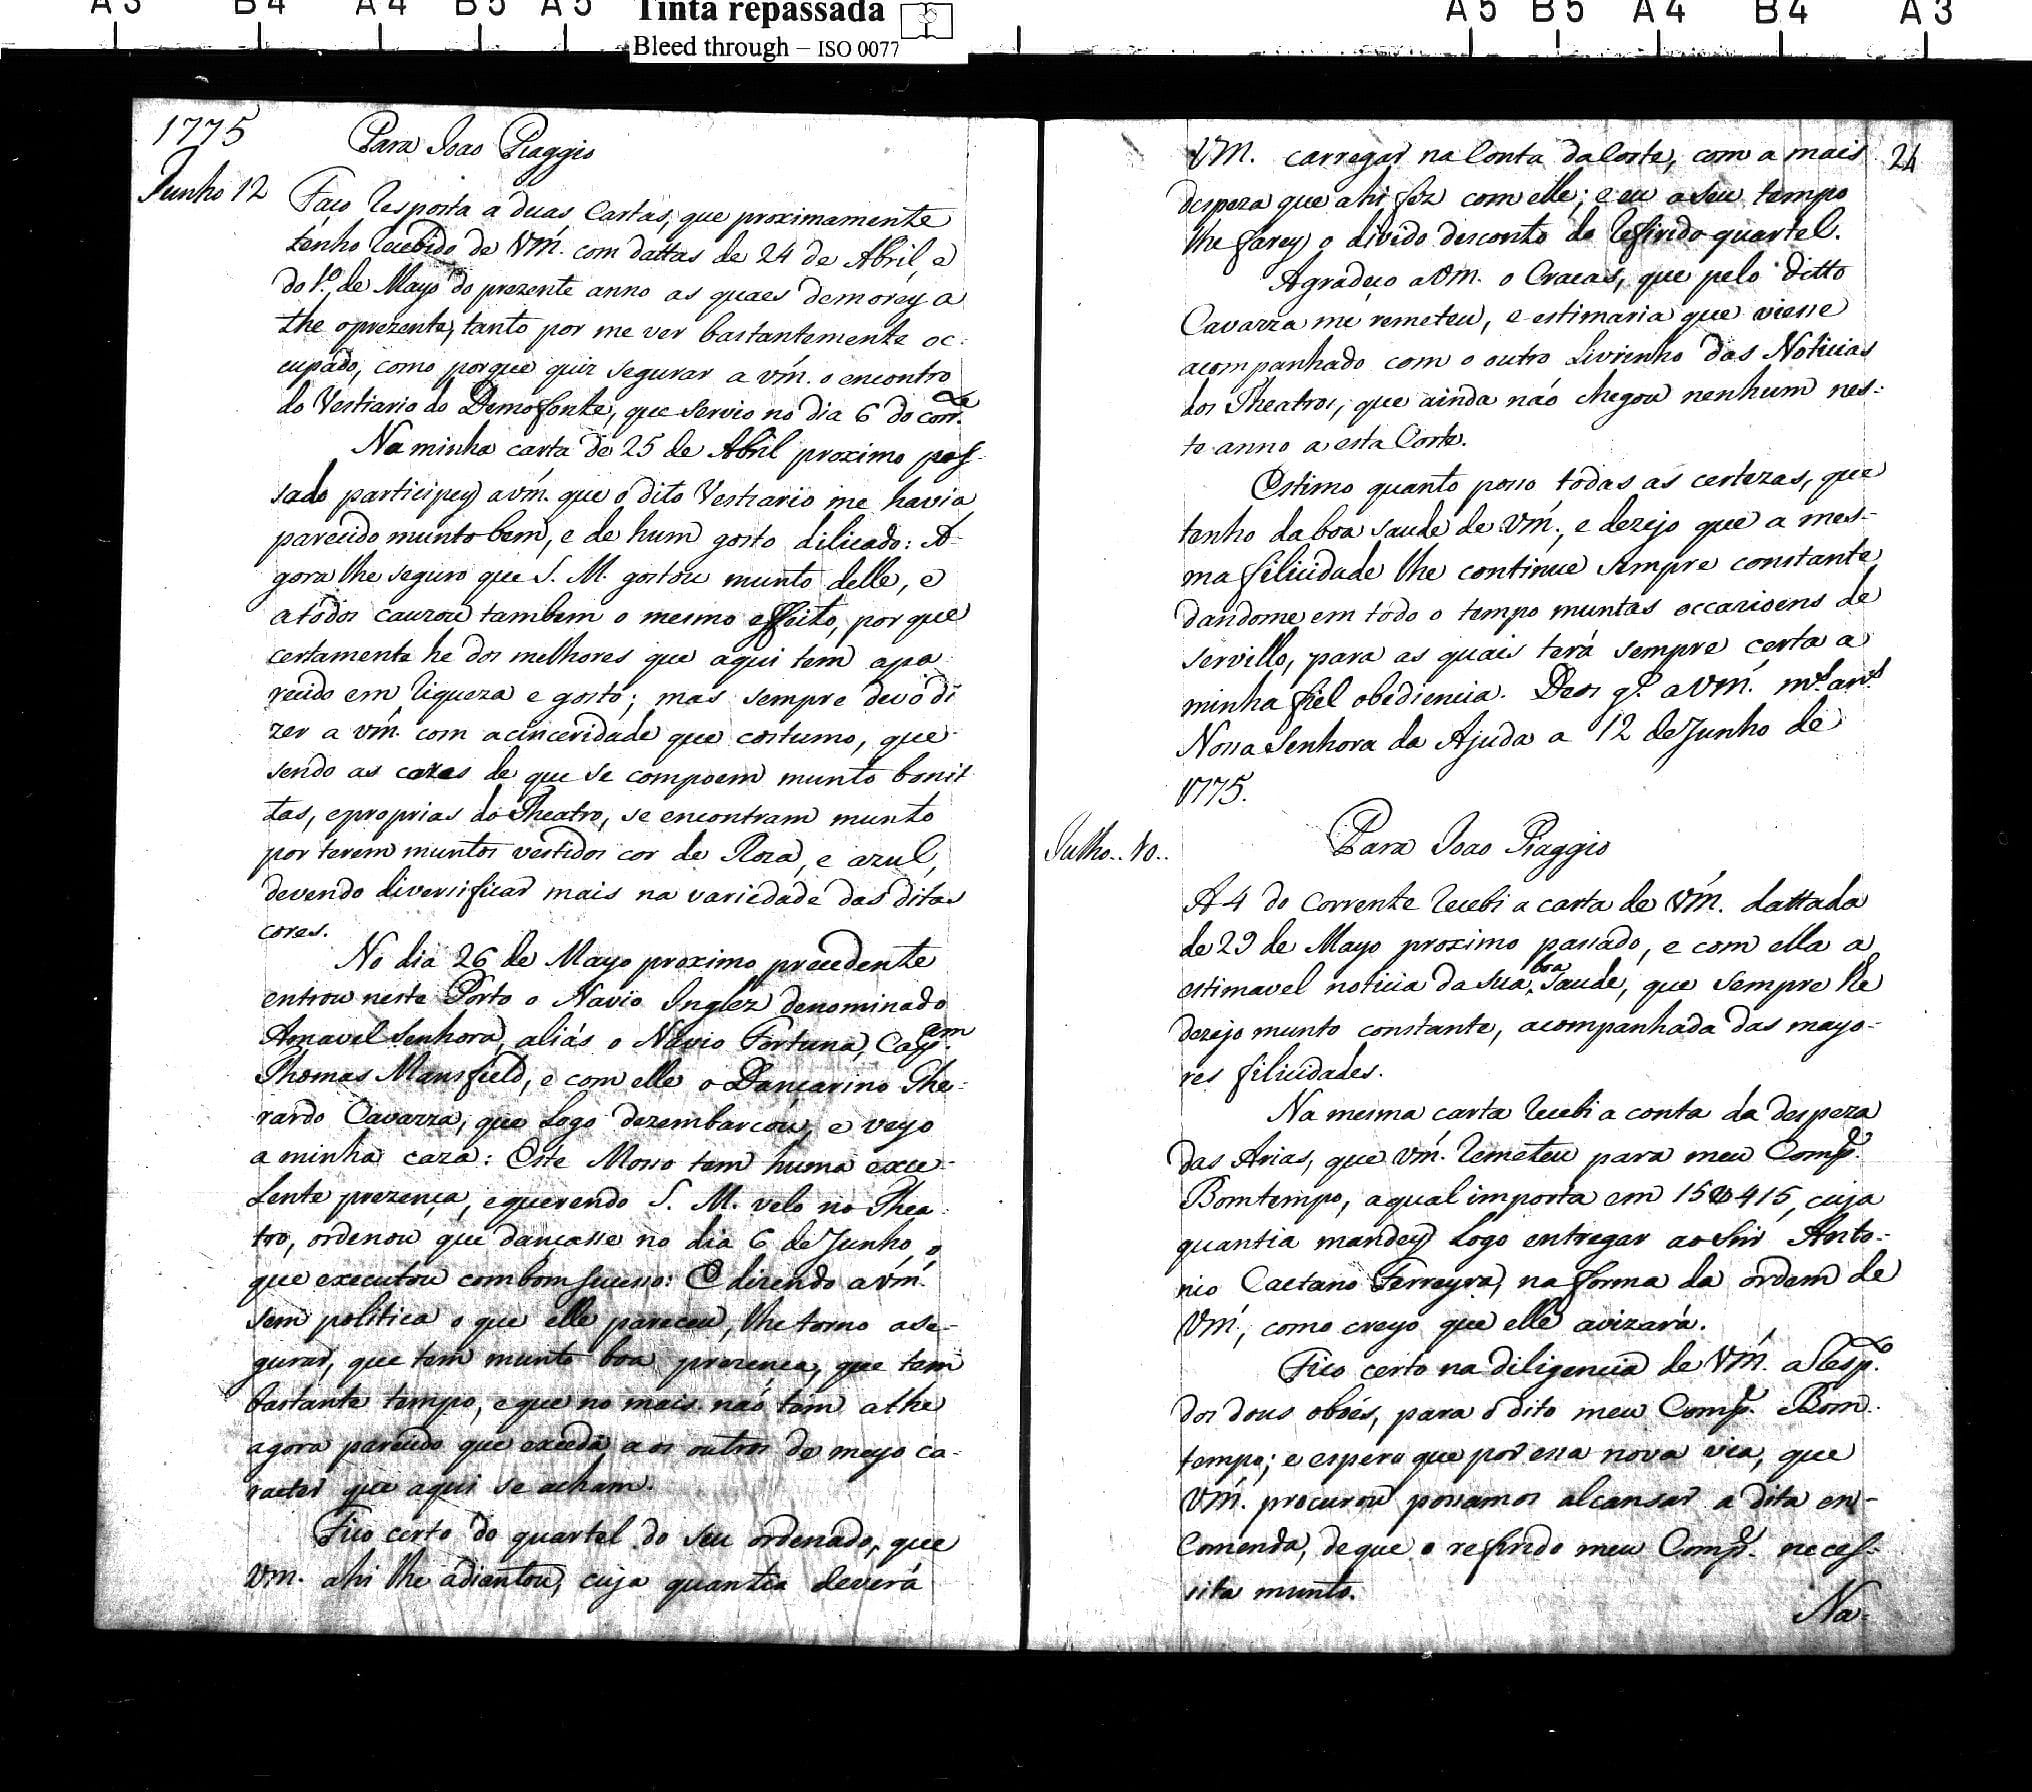 A3 B4 A4 B5 A5 Tinta repassada A5 B5 A4 B4 A3
Bleed through – ISO 0077
1775
Para Joao Piaggio
Junho 12
Faço resposta a duas Cartas, que proximamente
tenho recebido de Vm̃. com dattas de 24 de Abril, e
do 1.º de Mayo do prezente anno as quaes demorey a
the o prezente, tanto por me ver bastantemente oc-
cupado, como porque quiz segurar a vm̃. o encontro
do Vestiario do Demofonte, que servio no dia 6 do corr.te
Na minha carta de 25 de Abril proximo pas-
sado participey a vm̃. que o dito Vestiario me havia
parecido munto bem, e de hum gosto dilicado: A-
gora lhe seguro que S. M. gostou munto delle, e
a todos cauzou tambem o mesmo effeito, por que
certamente he dos melhores que aqui tem apa-
recido em riqueza e gosto; mas sempre devo di
zer a vm̃ com a cinceridade que costumo, que
sendo as cores de que se compoem munto bonit
tas, e proprias do Theatro, se encontram munto
por terem muntos vestidos cor de Roza, e azul,
devendo diversificar mais na variedade das ditas
cores.
No dia 26 de Mayo proximo precedente
entrou neste Porto o Navio Inglez denominado
Amavel Senhora, aliás o Navio Fortuna, Cap.am
Thomas Mansfield, e com elle o Dançarino Ghe-
rardo Cavazza, que logo dezembarcou, e veyo
a minha caza: Este Mosso tem huma exce-
lente prezença, e querendo S. M. velo no Thea-
tro, ordenou que dançasse no dia 6 de Junho, o
que executou com bom sucesso: E dizendo a vm̃.
sem politica o que elle pareceu, lhe torno a se-
gurar, que tem munto boa prezença, que tem
bastante tempo, e que no mais não tem athe
agora parecido que exceda aos outros de meyo ca-
racter que aqui se acham.
Fico certo do quartel do seu ordenado, que
Vm. ahi lhe adiantou, cuja quantia deverá
24
VM. carregar na Conta da Corte, com a mais
despeza que ahi fez com elle; e eu a seu tempo
lhe farey o divido desconto do refirido quartel.
Agradeço a Vm. o Cracas, que pelo ditto
Cavazza me remeteu, e estimaria que viesse
acompanhado com o outro Livrinho das Noticias
dos Theatros, que ainda não chegou nenhum nes-
te anno a esta Corte.
Estimo quanto posso todas as certezas, que
tenho da boa saude de Vm̃., e dezejo que a mes-
ma filicidade lhe continue sempre constante,
dandome em todo o tempo muntas occazioens de
servillo, para as quais terá sempre certa a
minha fiel obediencia. Deos g.e a Vm̃. m.s an.s
Nossa Senhora da Ajuda a 12 de Junho de
1775.
Julho.. 10..
Para Joao Piaggio
A 4 do Corrente recebi a carta de Vm̃. dattada
de 29 de Mayo proximo passado, e com ella a
estimavel noticia da sua boa saude, que sempre lhe
dezejo munto constante, acompanhada das mayo-
res filicidades.
Na mesma carta recebi a conta da despeza
das Arias, que vm̃. remeteu para meu Comp.e
Bomtempo, a qual importa em 15$415, cuja
quantia mandey logo entregar ao Snr̃ Anto-
nio Caetano Ferreyra, na forma da ordem de
Vm̃, como creyo que elle avizará.
Fico certo na diligencia de Vm̃. a resp.to
dos dous oboés, para o dito meu Comp.e Bom-
tempo; e espero que por essa nova via, que
Vm̃. procurou possamos alcansar a dita en-
Comenda, de que o refirido meu Comp.e neces-
sita munto.
Na-